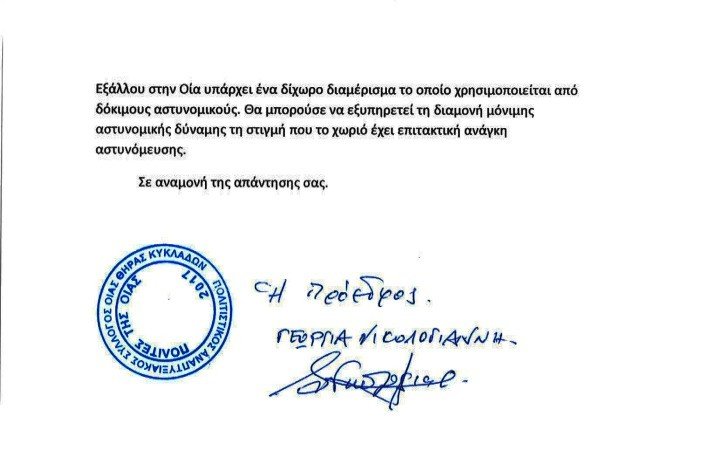 Εξάλλου στην Οία υπάρχει ένα δίχωρο διαμέρισμα το οποίο χρησιμοποιείται από
δόκιμους αστυνομικούς. Θα μπορούσε να εξυπηρετεί τη διαμονή μόνιμης
αστυνομικής δύναμης τη στιγμή που το χωριό έχει επιτακτική ανάγκη
αστυνόμευσης.
Σε αναμονή της απάντησης σας.
ΠΟΛΙΤΙΣΤΙΚΟΣ ΑΝΑΠΤΥΞΙΑΚΟΣ ΣΥΛΛΟΓΟΣ ΟΙΑΣ ΘΗΡΑΣ ΚΥΚΛΑΔΩΝ
ΠΟΛΙΤΕΣ ΤΗΣ ΟΙΑΣ
2017
Η Πρόεδρος.
ΓΕΩΡΓΙΑ ΝΙΚΟΛΟΓΙΑΝΝΗ